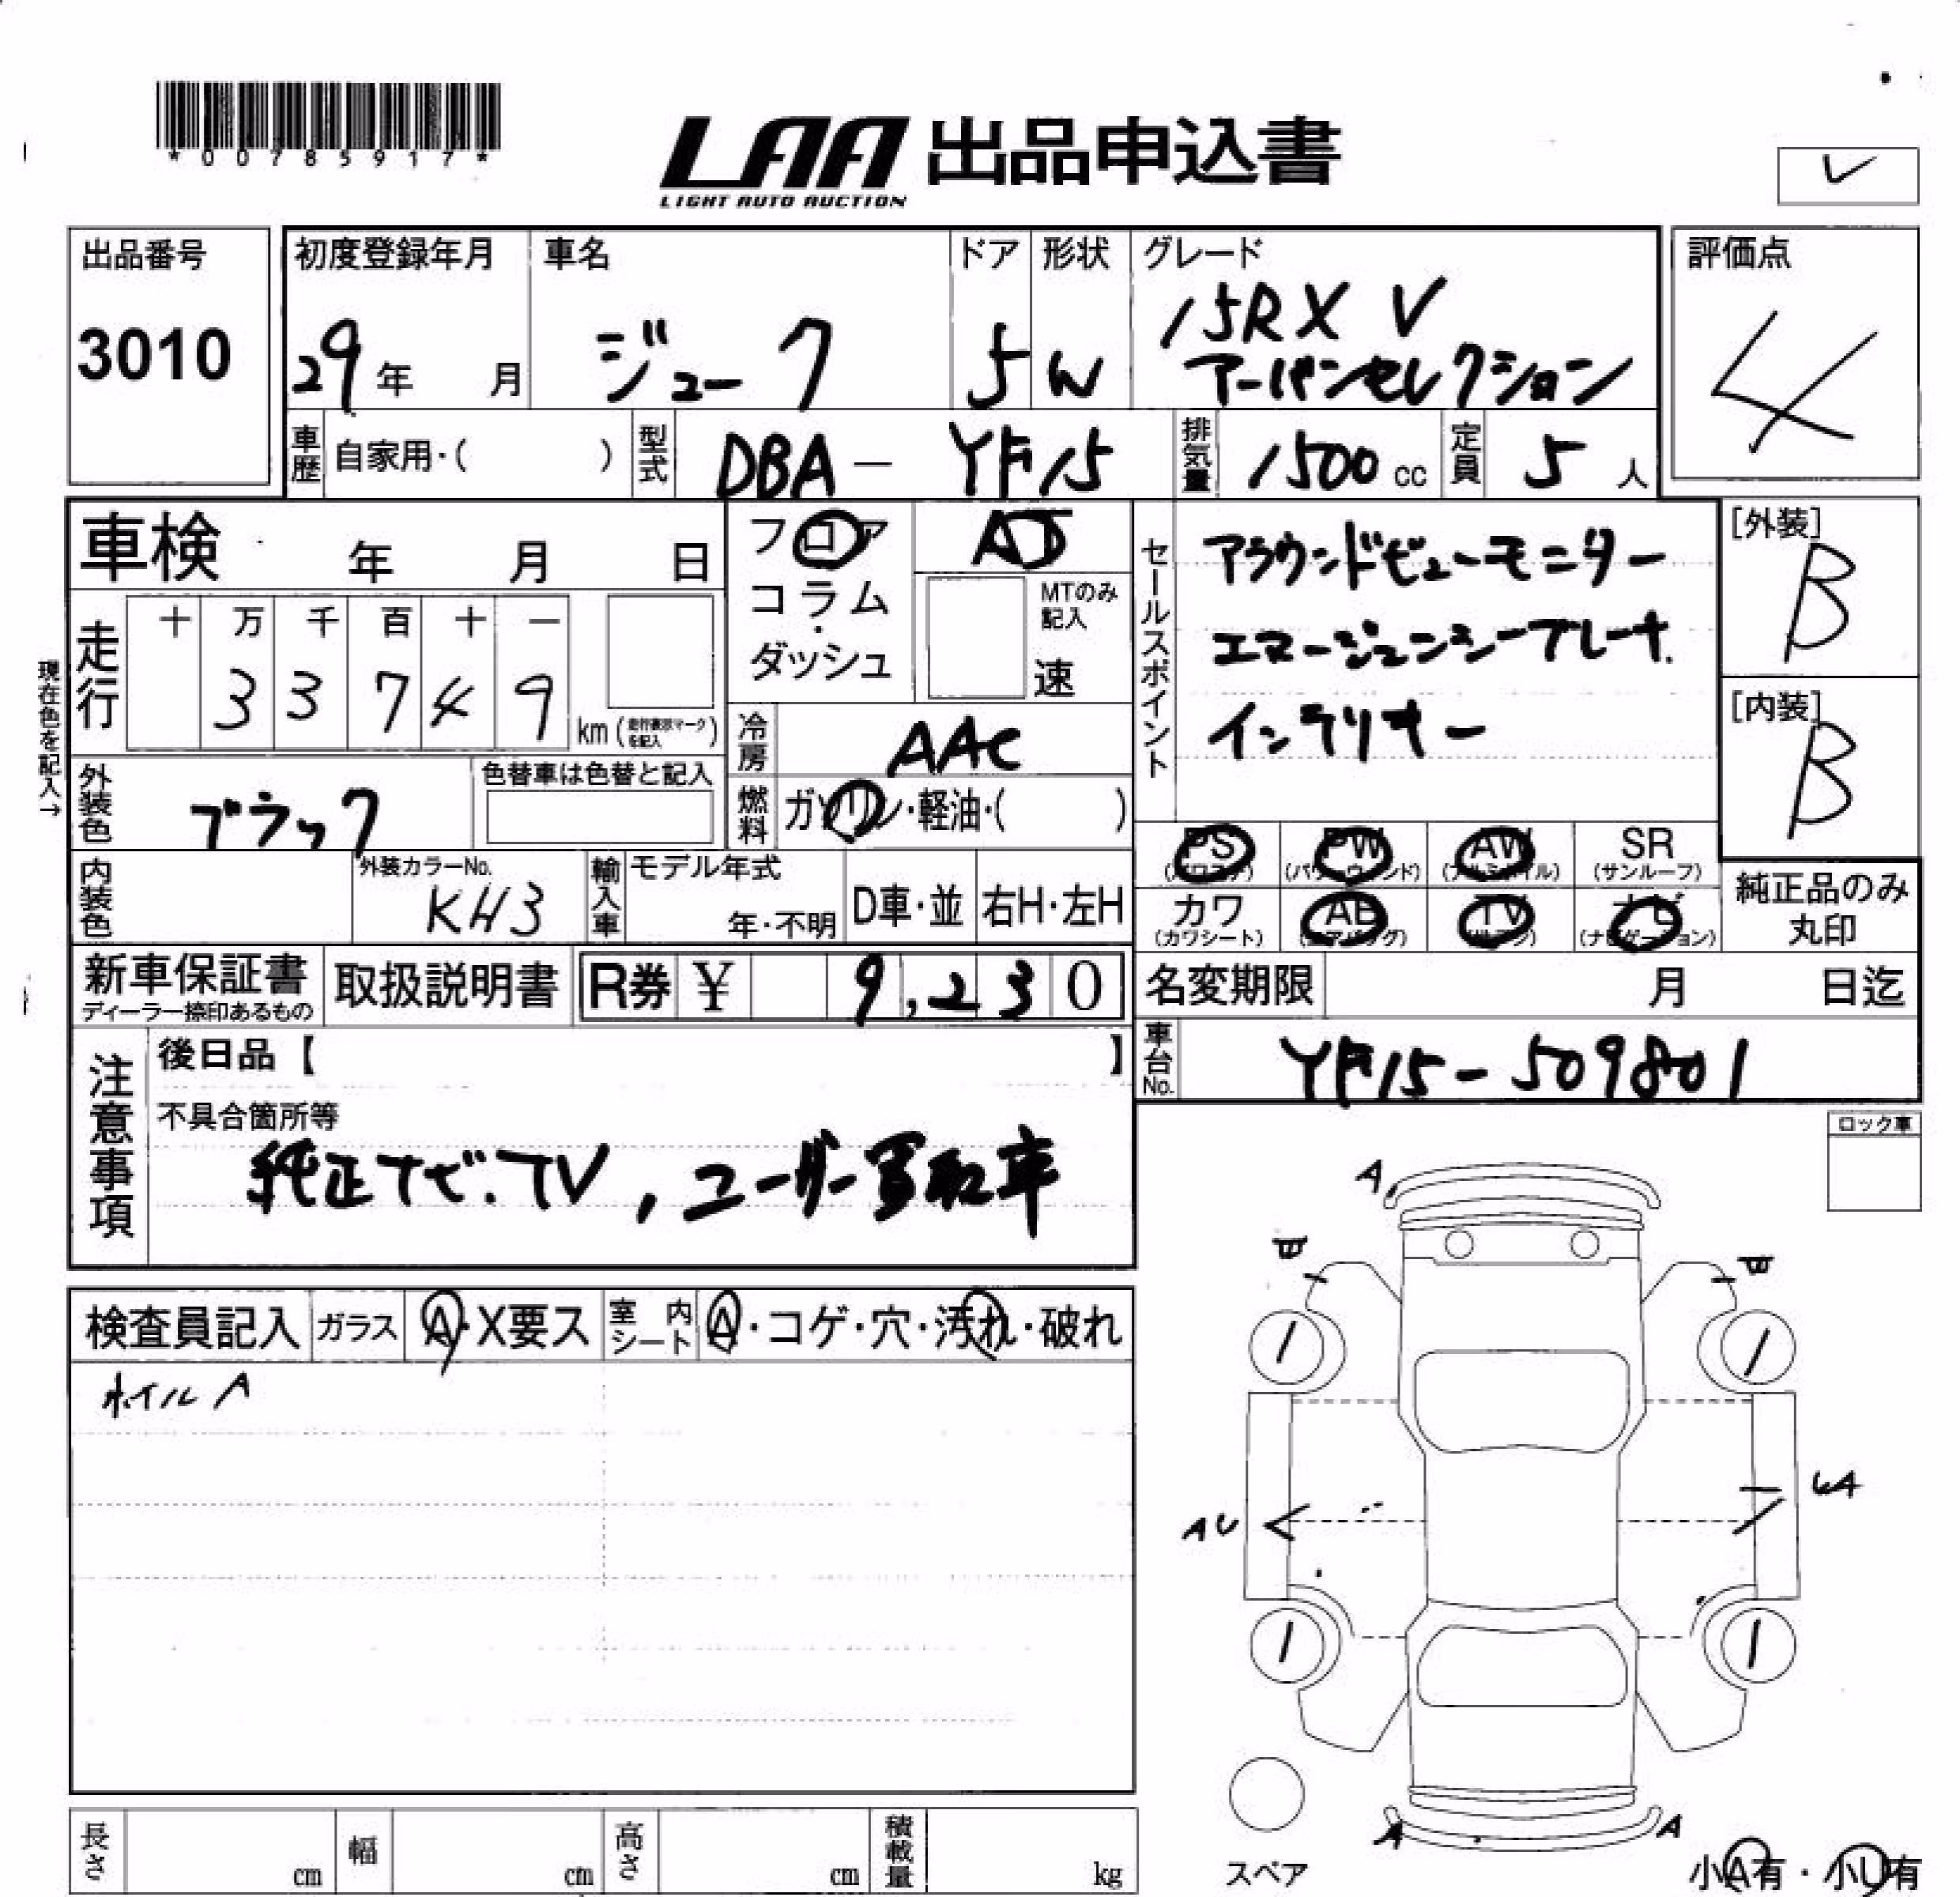 *00785917*
LAA 出品申込書
LIGHT AUTO AUCTION
出品番号
3010
初度登録年月
29年 月
車名
ジューク
ドア
5
形状
W
グレード
15RX V
アーバンセレクション
評価点
4
車歴 自家用・( )
型式 DBA - YF15
排気量 1500 cc
定員 5 人
車検 年 月 日
フロア
コラム
・
ダッシュ
AT
MTのみ
記入
速
セールスポイント
アラウンドビューモニター
エマージェンシーブレーキ
インテリキー
[外装]
B
[内装]
B
現在色を記入→
走行
十 万 千 百 十 一
3 3 7 4 9
km (走行表示マークを記入)
冷房 AAC
燃料 ガソリン・軽油・( )
外装色 ブラック
色替車は色替と記入
内装色
外装カラーNo.
KH3
輸入車 モデル年式
年・不明
D車・並 右H・左H
PS
(パワステ)
PW
(パワーウィンド)
AW
(アルミホイル)
SR
(サンルーフ)
カワ
(カワシート)
AB
(エアバッグ)
TV
(テレビ)
ナビ
(ナビゲーション)
純正品のみ
丸印
新車保証書
ディーラー捺印あるもの
取扱説明書
R券 ¥ 9,230
名変期限 月 日迄
車台No. YF15-509801
注意事項
後日品【 】
不具合箇所等
純正ナビ.TV, ユーザー買取車
ロック車
検査員記入 ガラス A・X要ス 室内シート A・コゲ・穴・汚れ・破れ
ホイル A
A
AU
UA
A
A
スペア
小A有・小U有
長さ cm 幅 cm 高さ cm 積載量 kg